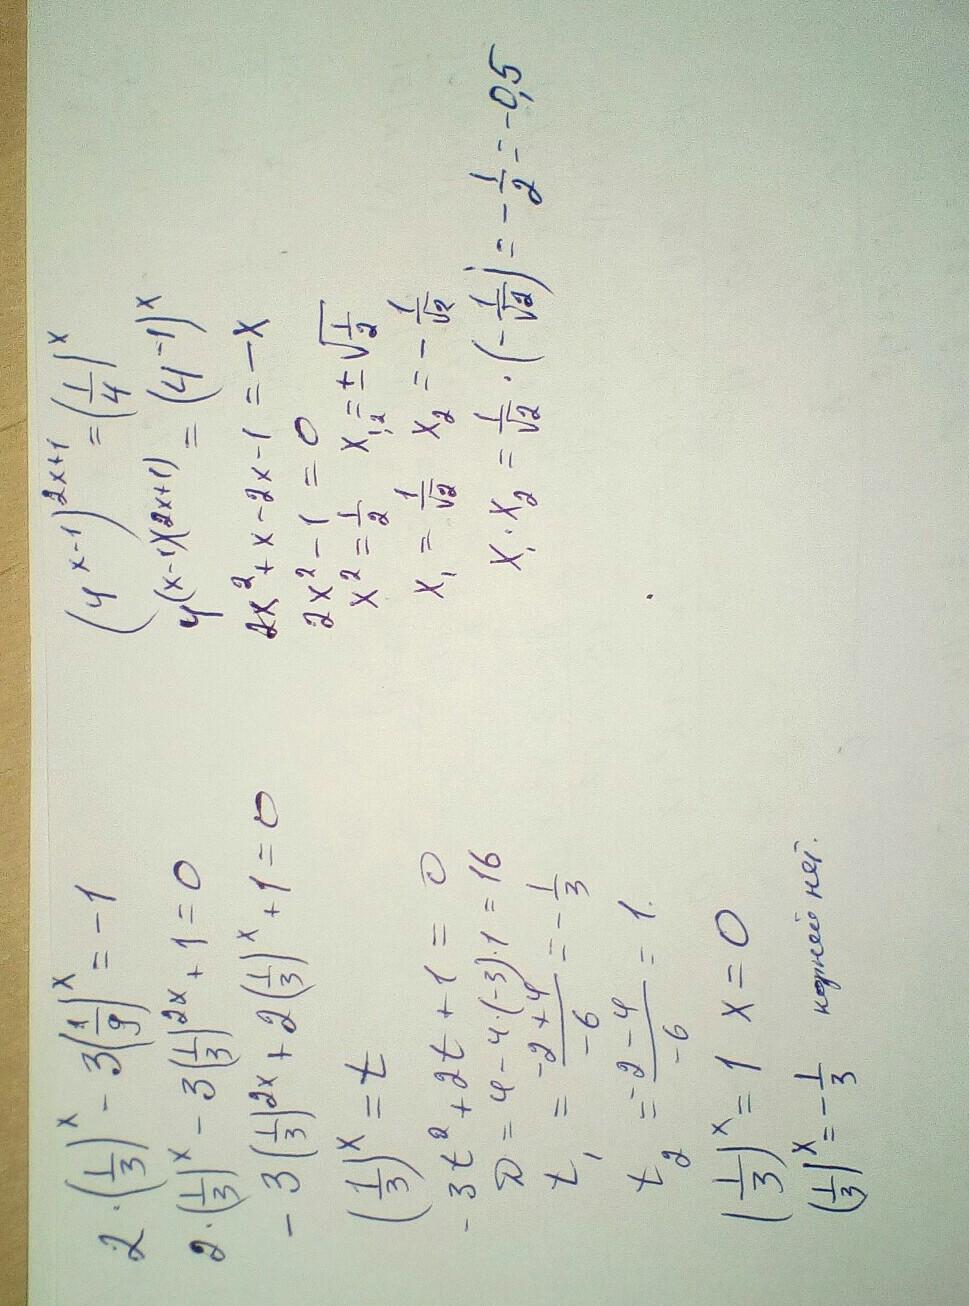 2·(1/3)^x - 3(1/9)^x = -1
2·(1/3)^x - 3(1/3)^2x + 1 = 0
-3(1/3)^2x + 2(1/3)^x + 1 = 0
(1/3)^x = t
-3t² + 2t + 1 = 0
D = 4 - 4·(-3)·1 = 16
t₁ = (-2+4)/-6 = -1/3
t₂ = (-2-4)/-6 = 1.
(1/3)^x = 1 x = 0
(1/3)^x = -1/3 корней нет.
(4^x-1)^2x+1 = (1/4)^x
4^(x-1)(2x+1) = (4^-1)^x
2x² + x - 2x - 1 = -x
2x² - 1 = 0
x² = 1/2 x₁,₂ = ±√1/2
x₁ = 1/√2 x₂ = -1/√2
x₁·x₂ = 1/√2·(-1/√2) = -1/2 = -0,5